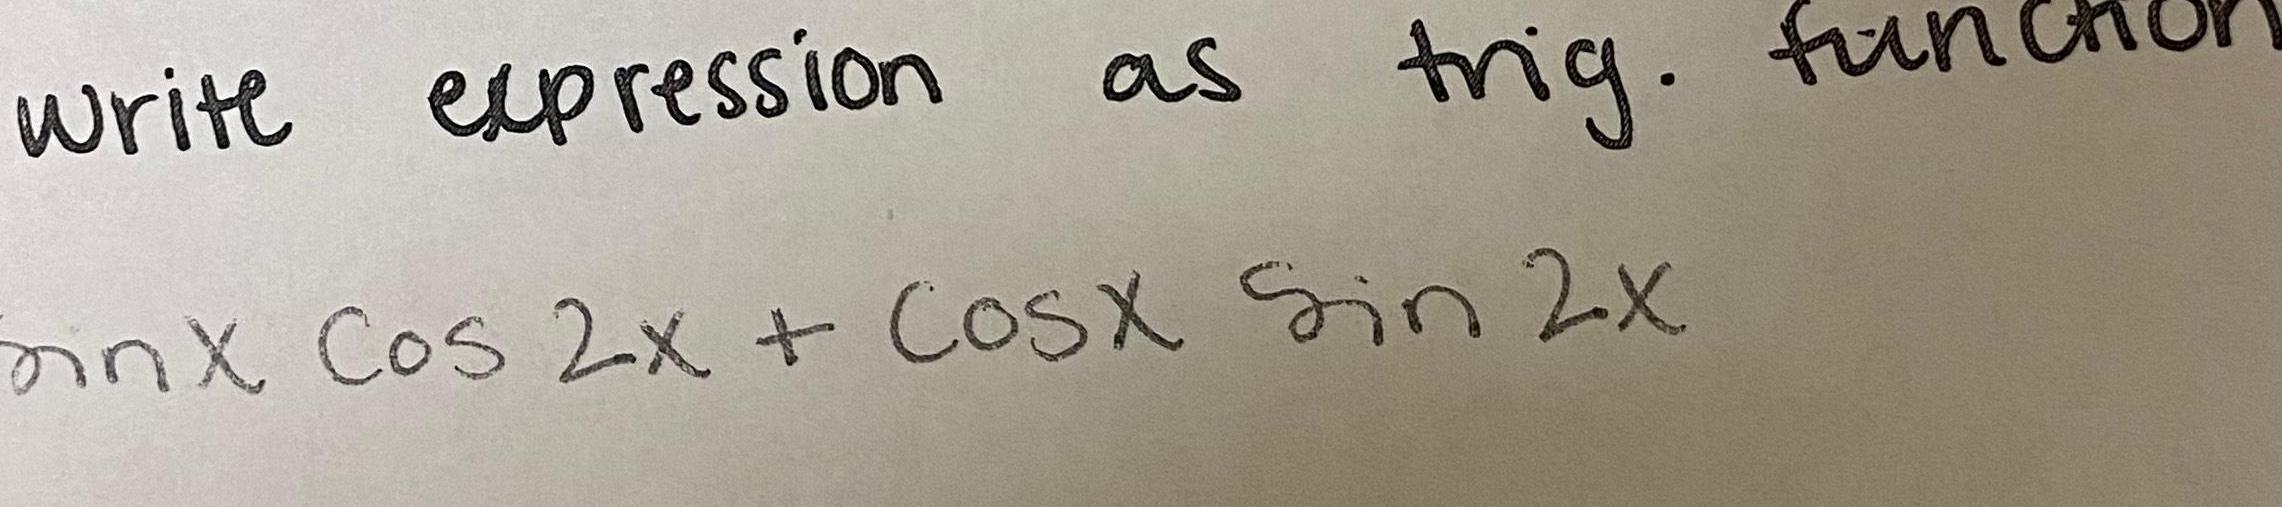 write expression as trig. function
sinx cos 2x + cosx sin 2x